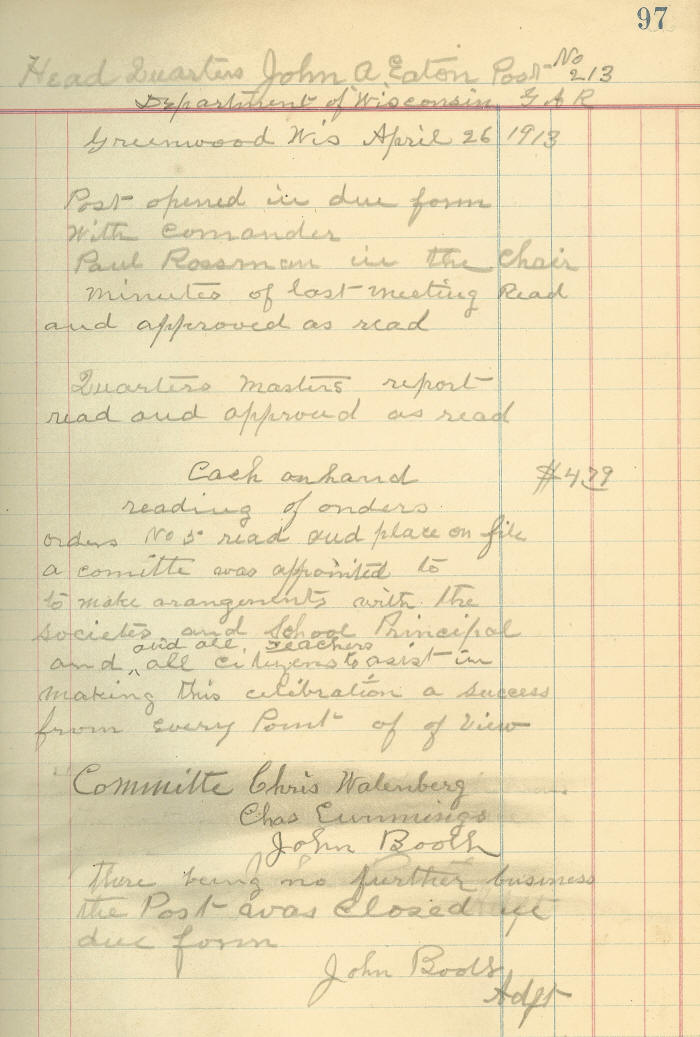 97
Head Quarters John A Eaton Post No 213
Department of Wisconsin G A R
Greenwood Wis April 26 1913
Post opened in due form
With Comander
Paul Rossman in the Chair
minutes of last meeting Read
and approved as read
Quarters masters report
read and approved as read
Cash on hand $4 79
reading of orders
orders No 5 read and place on file
a comitte was appointed to
to make arangements with the
societes and School Principal
and all teachers
and ^ all citizens to asist in
making this celibration a success
from every Point of of View
Committe Chris Walenberg
Chas Cummings
John Booth
there being no further business
the Post was closed
due form
John Booth
Adjt